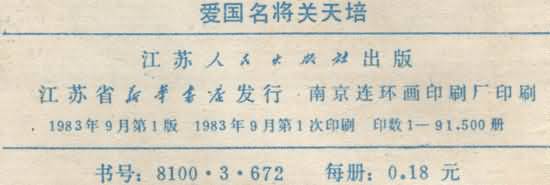 爱国名将关天培
江苏人民出版社出版
江苏省新华书店发行 南京连环画印刷厂印刷
1983年9月第1版 1983年9月第1次印刷 印数1—91.500册
书号：8100·3·672 每册：0.18元